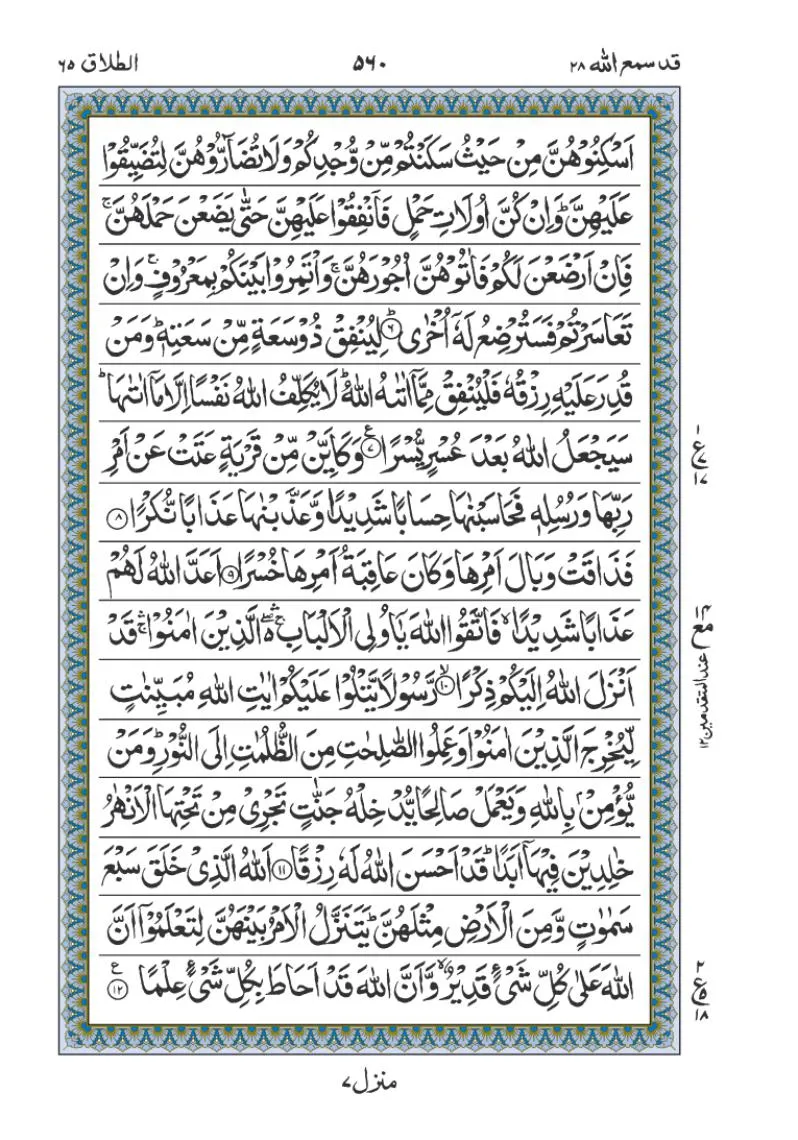 قد سمع الله ۲۸
۵۶۰
الطلاق ۶۵
اَسْكِنُوْهُنَّ مِنْ حَيْثُ سَكَنْتُمْ مِّنْ وُّجْدِكُمْ وَلَا تُضَآرُّوْهُنَّ لِتُضَيِّقُوْا
عَلَيْهِنَّ ؕ وَاِنْ كُنَّ اُولَاتِ حَمْلٍ فَاَنْفِقُوْا عَلَيْهِنَّ حَتّٰى يَضَعْنَ حَمْلَهُنَّ ۚ
فَاِنْ اَرْضَعْنَ لَكُمْ فَاٰتُوْهُنَّ اُجُوْرَهُنَّ ۚ وَاْتَمِرُوْا بَيْنَكُمْ بِمَعْرُوْفٍ ۚ وَاِنْ
تَعَاسَرْتُمْ فَسَتُرْضِعُ لَهٗۤ اُخْرٰى ؕ ۶ لِيُنْفِقْ ذُوْ سَعَةٍ مِّنْ سَعَتِهٖ ؕ وَمَنْ
قُدِرَ عَلَيْهِ رِزْقُهٗ فَلْيُنْفِقْ مِمَّاۤ اٰتٰىهُ اللّٰهُ ؕ لَا يُكَلِّفُ اللّٰهُ نَفْسًا اِلَّا مَاۤ اٰتٰىهَا ؕ
سَيَجْعَلُ اللّٰهُ بَعْدَ عُسْرٍ يُّسْرًا ۷ ع وَكَاَيِّنْ مِّنْ قَرْيَةٍ عَتَتْ عَنْ اَمْرِ
رَبِّهَا وَرُسُلِهٖ فَحَاسَبْنٰهَا حِسَابًا شَدِيْدًا وَّعَذَّبْنٰهَا عَذَابًا نُّكْرًا ۸
فَذَاقَتْ وَبَالَ اَمْرِهَا وَكَانَ عَاقِبَةُ اَمْرِهَا خُسْرًا ۹ اَعَدَّ اللّٰهُ لَهُمْ
عَذَابًا شَدِيْدًا ۙ فَاتَّقُوا اللّٰهَ يٰۤاُولِى الْاَلْبَابِ ۛۖۚ الَّذِيْنَ اٰمَنُوْا ۛؕ قَدْ
اَنْزَلَ اللّٰهُ اِلَيْكُمْ ذِكْرًا ۙ ۱۰ رَّسُوْلًا يَّتْلُوْا عَلَيْكُمْ اٰيٰتِ اللّٰهِ مُبَيِّنٰتٍ
لِّيُخْرِجَ الَّذِيْنَ اٰمَنُوْا وَعَمِلُوا الصّٰلِحٰتِ مِنَ الظُّلُمٰتِ اِلَى النُّوْرِ ؕ وَمَنْ
يُّؤْمِنْۢ بِاللّٰهِ وَيَعْمَلْ صَالِحًا يُّدْخِلْهُ جَنّٰتٍ تَجْرِىْ مِنْ تَحْتِهَا الْاَنْهٰرُ
خٰلِدِيْنَ فِيْهَاۤ اَبَدًا ؕ قَدْ اَحْسَنَ اللّٰهُ لَهٗ رِزْقًا ۱۱ اَللّٰهُ الَّذِىْ خَلَقَ سَبْعَ
سَمٰوٰتٍ وَّمِنَ الْاَرْضِ مِثْلَهُنَّ ؕ يَتَنَزَّلُ الْاَمْرُ بَيْنَهُنَّ لِتَعْلَمُوْۤا اَنَّ
اللّٰهَ عَلٰى كُلِّ شَىْءٍ قَدِيْرٌ ۙ وَّاَنَّ اللّٰهَ قَدْ اَحَاطَ بِكُلِّ شَىْءٍ عِلْمًا ۱۲ ع
۱
ع ۷
۱۷
مع
عند المتقدمين ۱۲
۲
ع
۱۸
منزل ۷